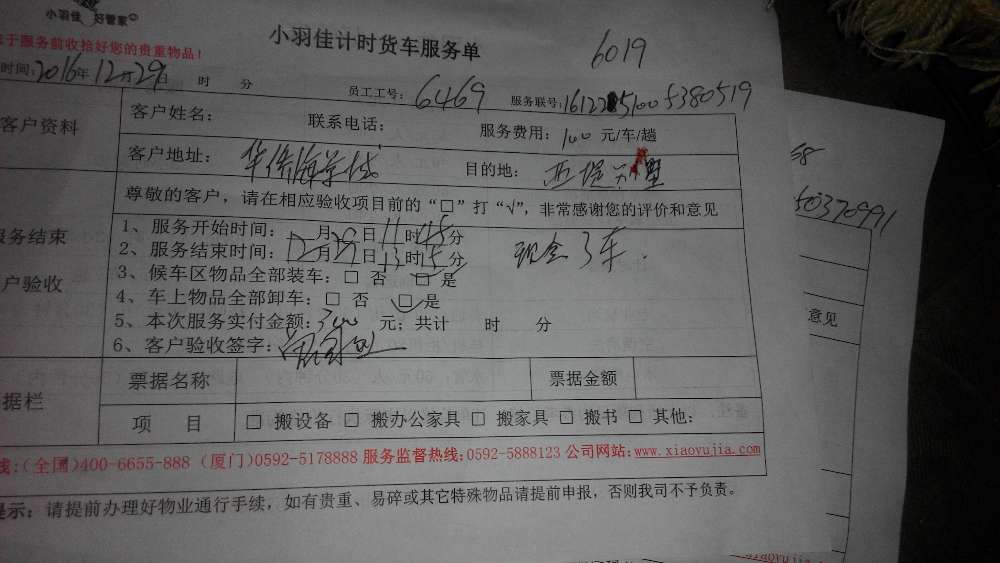 小羽佳 好管家
小羽佳计时货车服务单
6019
于服务前收拾好您的贵重物品！
时间：2016年12月29日 时 分
员工工号：6469
服务联号：
客户资料
客户姓名： 联系电话： 服务费用：100 元/车/趟
客户地址：华侨海景城 目的地：西堤别墅
尊敬的客户，请在相应验收项目前的“□”打“√”，非常感谢您的评价和意见
服务结束
户验收
1、服务开始时间：12月29日11时45分
2、服务结束时间：12月29日13时15分
现金3车.
3、候车区物品全部装车：□ 否 □ 是
4、车上物品全部卸车：□ 否 □ 是
5、本次服务实付金额：300 元；共计 时 分
6、客户验收签字：
据栏
票据名称 票据金额
项 目 □ 搬设备 □ 搬办公家具 □ 搬家具 □ 搬书 □ 其他：
线：（全国）400-6655-888 （厦门）0592-5178888 服务监督热线：0592-5888123 公司网站：www.xiaoyujia.com
提示：请提前办理好物业通行手续，如有贵重、易碎或其它特殊物品请提前申报，否则我司不予负责。
50370991
意见